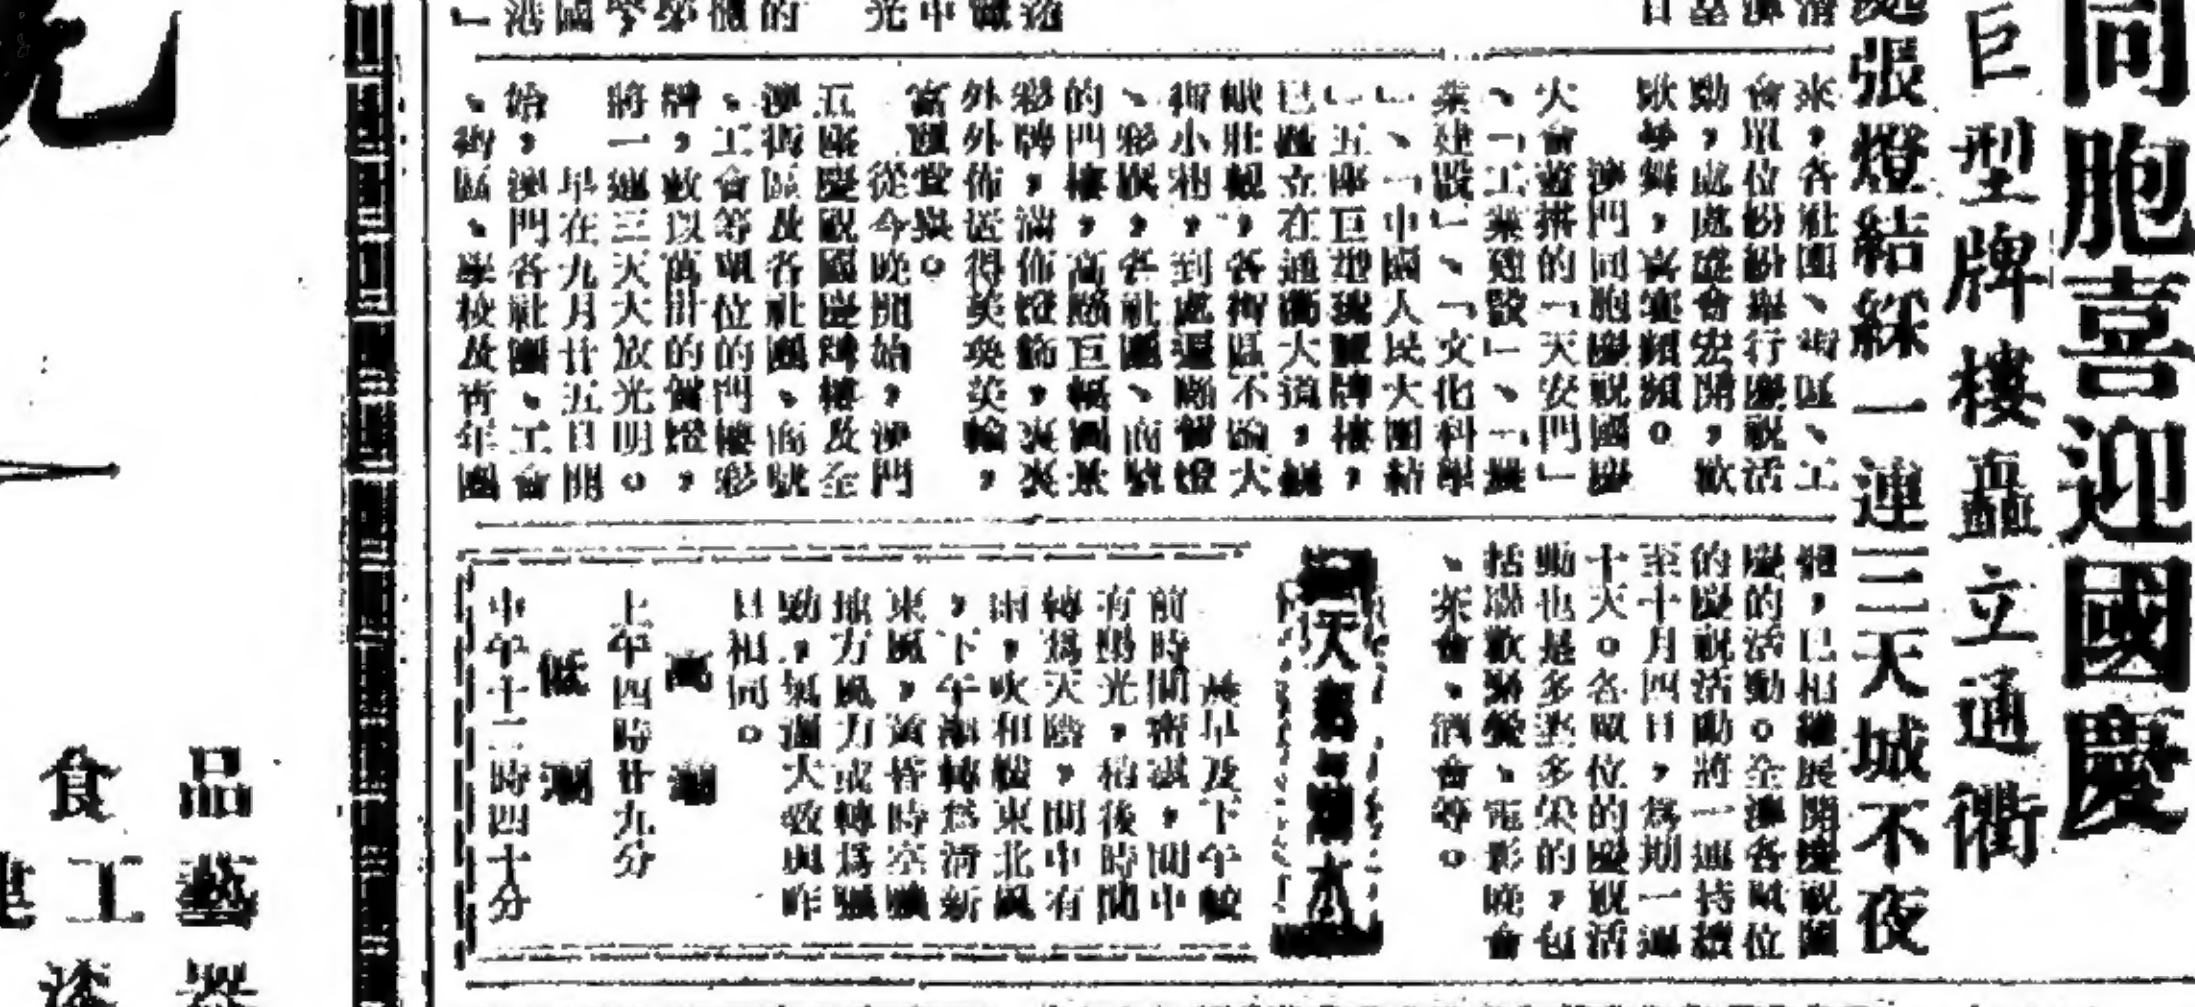 同胞喜迎國慶
巨型牌樓矗立通衢
張燈結綵一連三天城不夜
來，各社團、街區、工
會單位紛紛舉行慶祝活
動，處處盛會宏開，歡
歌妙舞，喜氣頻頻。
澳門同胞慶祝國慶
大會蓋搭的「天安門」
、「工業建設」、「農
業建設」、「文化科學
」、「中國人民大團結
」五座巨型瑰麗牌樓，
已矗立在通衢大道，巍
峨壯觀，各街區不論大
街小巷，到處遍懸電燈
、彩旗，各社團、商號
的門樓，高懸巨幅圖景
彩牌，滿佈燈飾，裏裏
外外佈置得美奐美輪，
從今晚開始，澳門
五座慶祝國慶牌樓及全
澳街區及各社團、商號
、工會等單位的門樓彩
牌，數以萬計的電燈，
將一連三天大放光明。
早在九月廿五日開
始，澳門各社團、工會
、街區、學校及青年團
體，已相繼展開慶祝國
慶的活動。全澳各單位
的慶祝活動將一連持續
至十月四日，爲期一連
十天。各單位的慶祝活
動也是多姿多采的，包
括聯歡聚餐、電影晚會
、茶會、酒會等。
晨早及下午較
前時間密雲，間中
有陽光，稍後時間
轉爲天陰，間中有
雨，吹和緩東北風
，下午漸轉爲清新
東風，黃昏時空曠
地方風力或轉爲強
勁，氣溫大致與昨
日相同。
高潮
上午四時廿九分
低潮
中午十二時四十分
品藝
食工